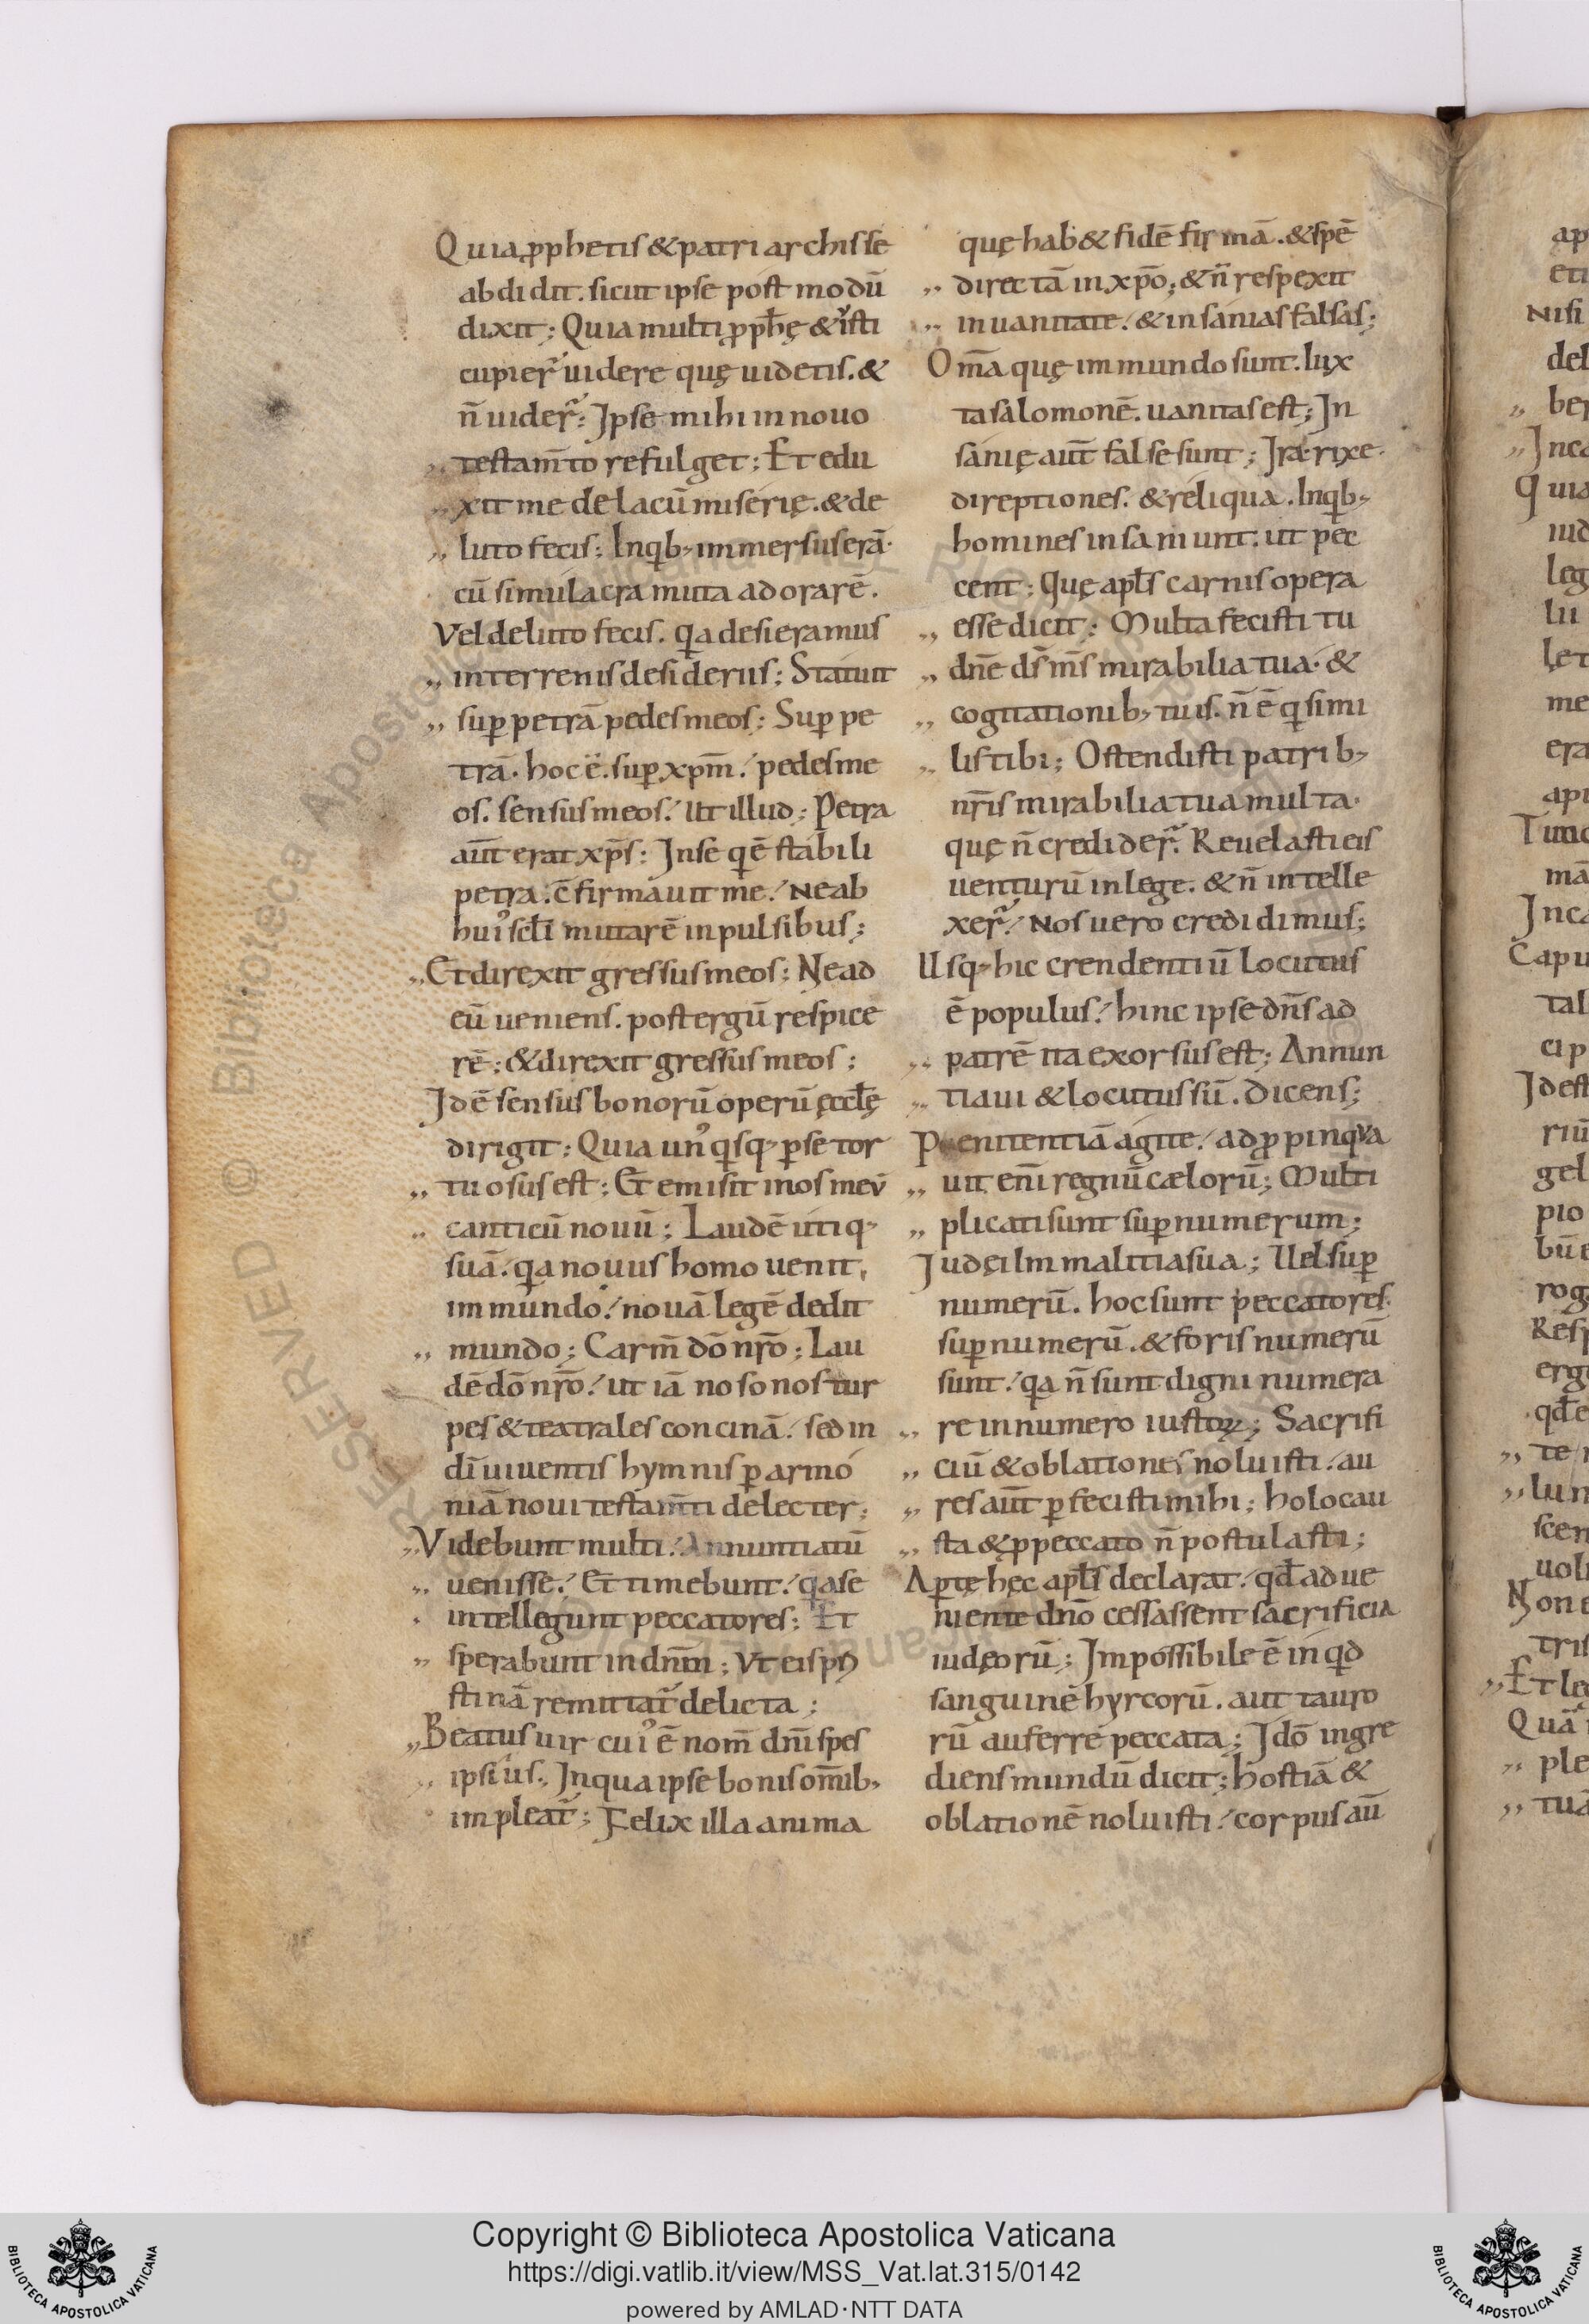 Quia ꝓphetis & patriarchis se
abdidit. sicut ipse post modū
dixit; Quia multi ꝓpħę & iusti
cupier̄ uidere quę uidetis. &
n̄ uider̄; Ipse mihi in nouo
„ testam̄to refulget; Et edu
„ xit me de lacū miserię. & de
„ luto fecis; In qb; immersus erā.
cū simulacra muta adorarē.
Vel de luto fecis. qa desieramus
„ in terrenis desideriis; Statuit
„ suꝑ petrā pedes meos; Suꝑ pe
trā. hoc ē. suꝑ xpm̄. pedes me
os. sensus meos. Ut illud; Petra
aūt erat xp̄s; In se qē stabili
petra. c̄firmauit me. Ne ab
hui' scl̄i mutarē inpulsibus;
„ Et direxit gressus meos; Ne ad
eū ueniens. post ergū respice
rē; & direxit gressus meos;
Idē sensus bonorū operū ęccłę
dirigit; Quia un' qsq; ꝑ se tor
„ tuosus est; Et emisit in os meū
„ canticū nouū; Laudē utiq;
suā. qa nouus homo uenit,
im mundo. nouā legē dedit
„ mundo; Carm̄ dō nr̄o; Lau
dē dō nr̄o. ut iā no sonos tur
pes & teatrales concinā. sed in
dī uiuentis hymnis ꝑ armo
niā noui testam̄ti delecter;
„ Videbunt multi. Annuntiatū
„ uenisse. Et timebunt. qa se
intellegunt peccatores; Et
„ sperabunt in dn̄m; Vt eis
stinā remittat̄ delicta;
„ Beatus uir cui' ē nom̄ dn̄i spes
„ ipsius. In qua ipse bonis om̄ib;
impleat̄; Felix illa anima
quę hab& fidē firmā. & spē
„ directā in xp̄o; & n̄ respexit
„ in uanitate. & insanias falsas;
Om̄a quę im mundo sunt. lux
ta salomonē. uanitas est; In
sanię aūt false sunt; Ira. rixe.
direptiones. & reliqua. In qb;
homines insaniunt. ut pec
cent; Quę apl̄s carnis opera
„ esse dicit; Multa fecisti tu
„ dn̄e ds̄ m̄s mirabilia tua. &
„ cogitationib; tuis. n̄ ē q simi
„ lis tibi; Ostendisti patrib;
nr̄is mirabilia tua multa.
quę n̄ credider̄. Reuelasti eis
venturū in lege. & n̄ intelle
xer̄. Nos uero credidimus;
Usq; hic crendentiū locutus
ē populus. hinc ipse dn̄s ad
„ patrē ita exorsus est; Annun
„ tiaui & locutus sū. dicens;
Poenitentiā agite. adꝓpinqua
„ uit enī regnū cælorū; Multi
„ plicati sunt suꝑ numerum;
Iudęi Im malitia sua; Uel suꝑ
numerū. hoc sunt peccatores.
suꝑ numerū. & foris numerū
sunt. qa n̄ sunt digni numera
„ re in numero iustoꝝ; Sacrifi
„ ciū & oblationes noluisti. au
„ res aūt ꝑfecisti mihi; holocau
„ sta & ꝓ peccato n̄ postulasti;
Aꝑtę hęc apl̄s declarat. qđ adue
niente dn̄o cessassent sacrificia
iudęorū; Impossibile ē inqd
sanguinē hyrcorū. aut tauro
rū auferre peccata; Idō ingre
diens mundū dicit; hostiā &
oblationē noluisti. corpus aū
Copyright © Biblioteca Apostolica Vaticana
https://digi.vatlib.it/view/MSS_Vat.lat.315/0142
powered by AMLAD·NTT DATA
BIBLIOTECA APOSTOLICA VATICANA
BIBLIOTECA APOSTOLICA VATICANA